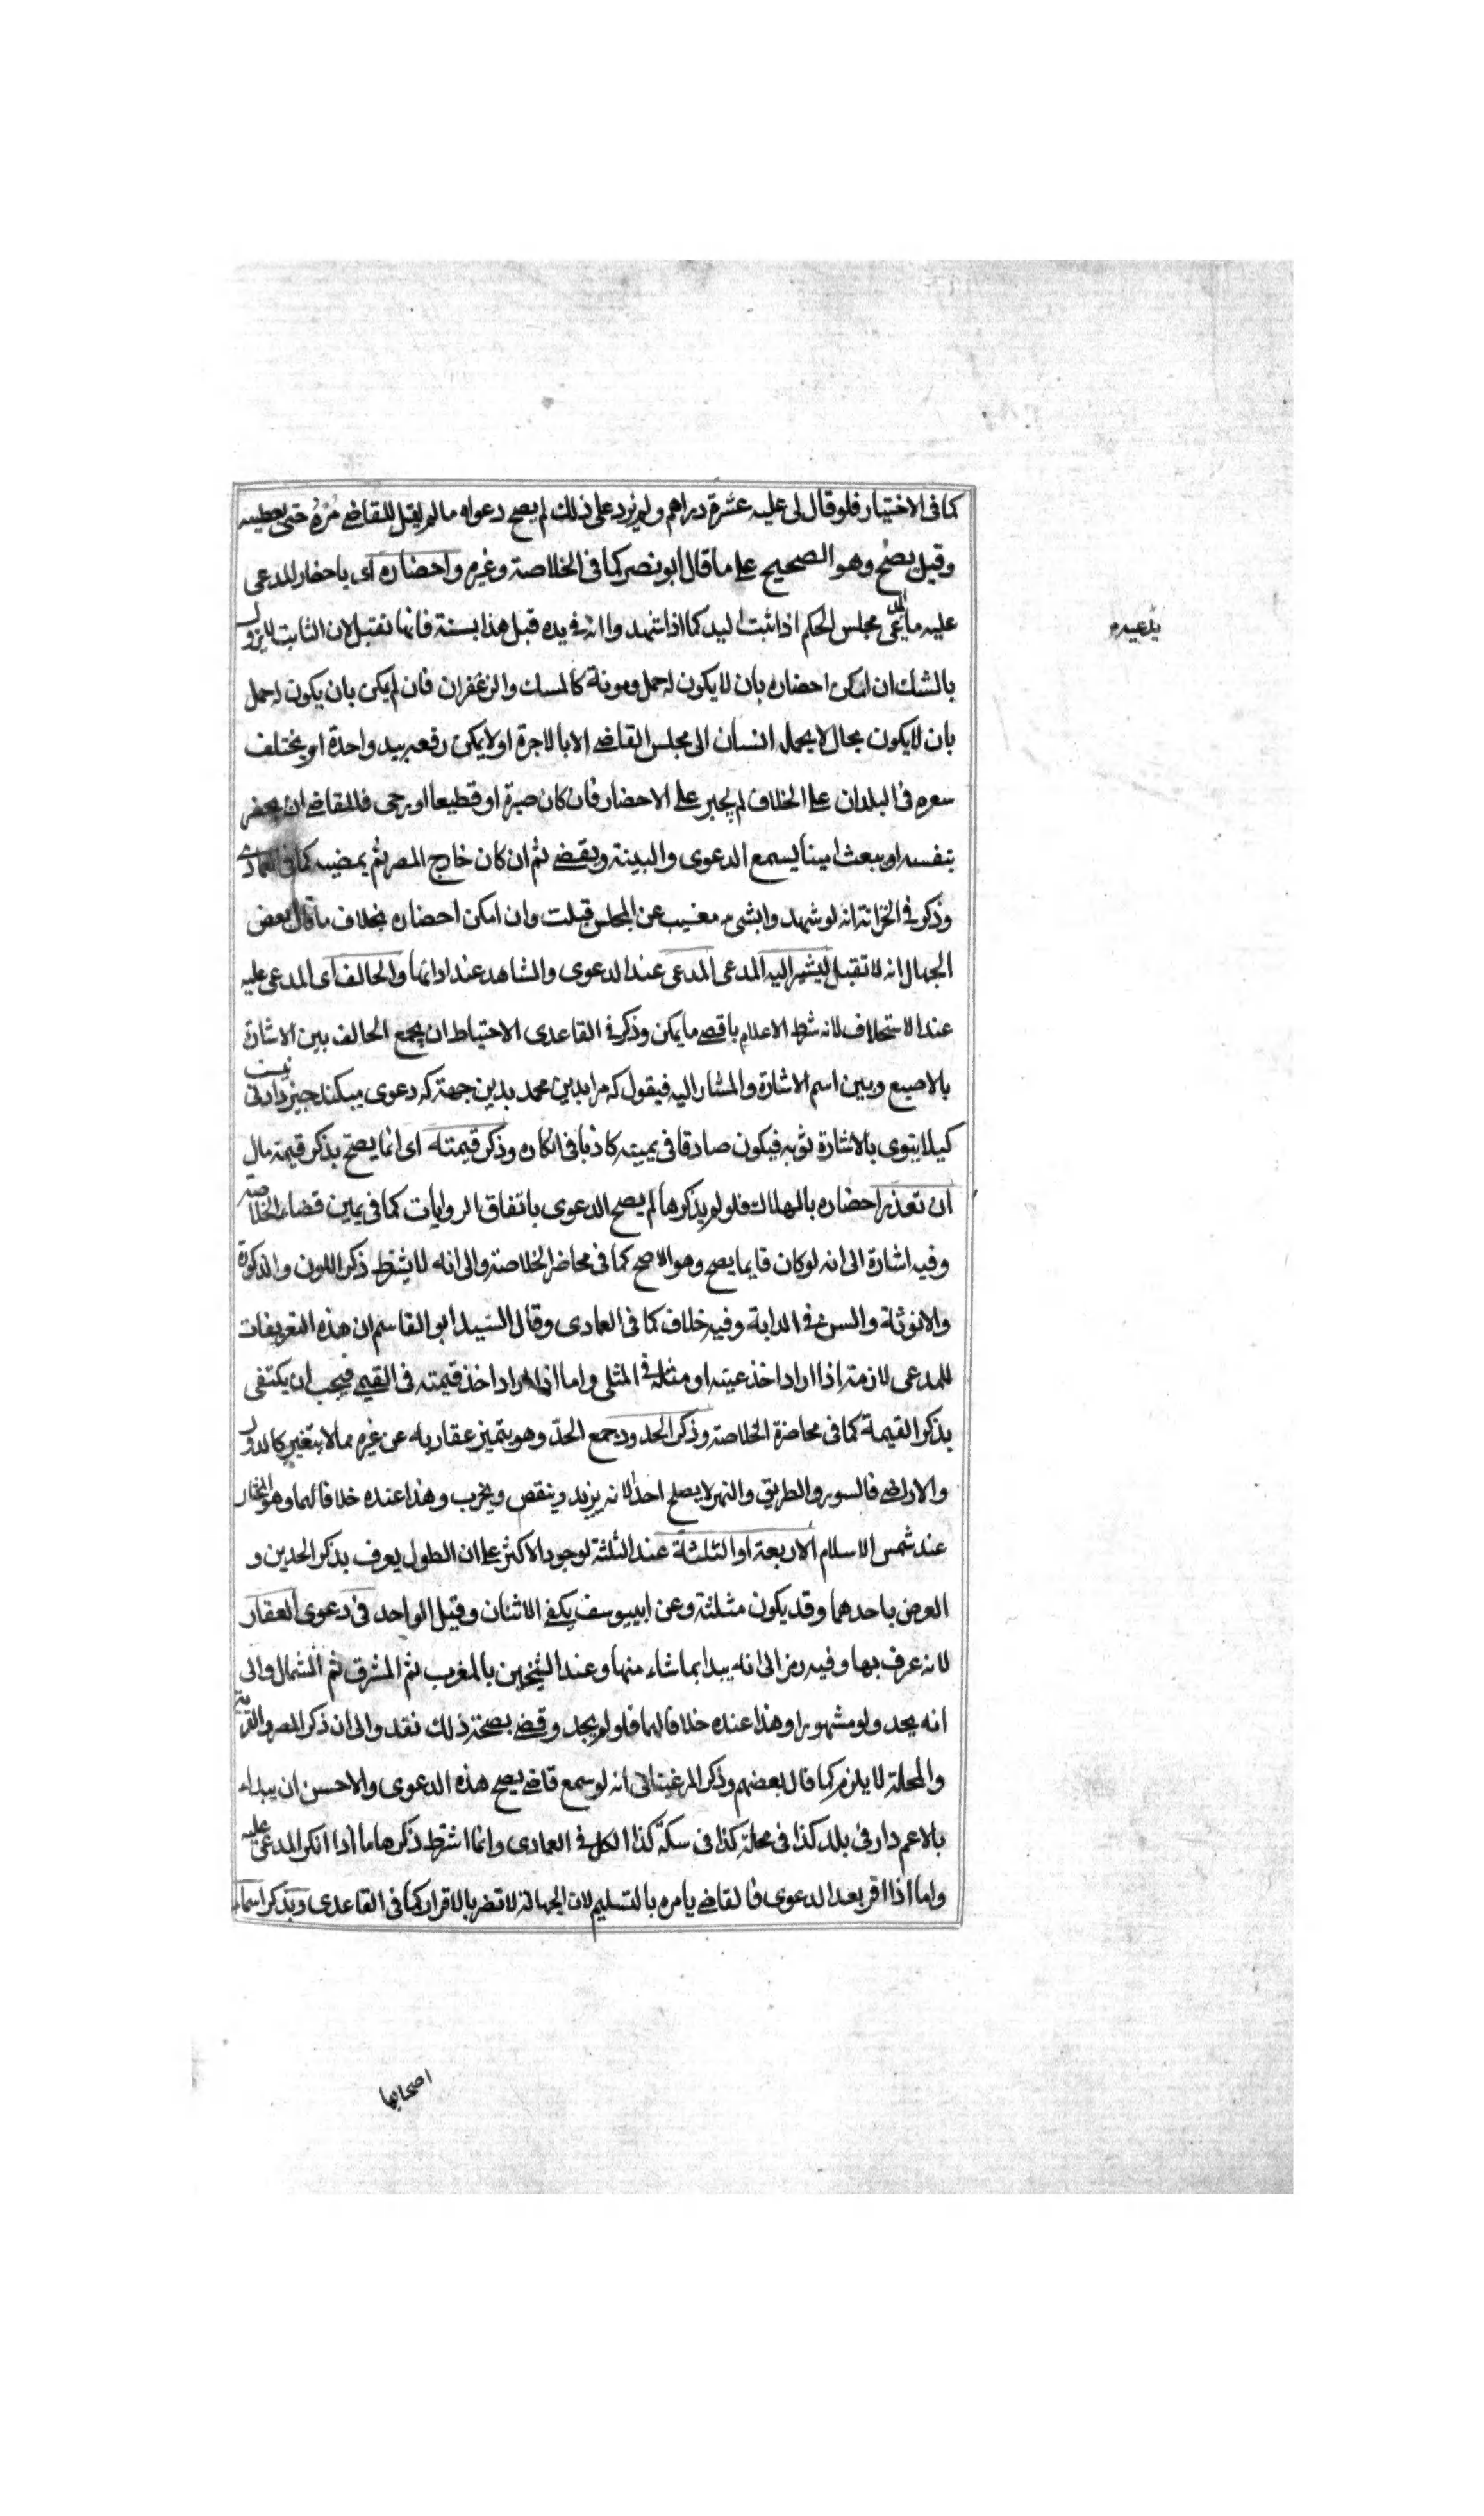 كما فى الاختيار فلو قال لى عليه عشرة دراهم ولم يزد على ذلك لم يصح دعواه مالم يقل للقاضى مره حتى يعطيه
وقيل يصح وهو الصحيح على ما قال ابو نصر كما فى الخلاصة وغيره واحضاره اى باحضار المدعى
عليه ما يدعى مجلس الحكم اذا ثبت اليد كما اذا شهدوا انه فى يده قبل هذا بسنة فانها تقبل لان الثابت لا يزول
يدعيه
بالشك ان امكن احضاره بان لا يكون له حمل ومونة كالمسك والزعفران فان لم يكن بان يكون له حمل
بان لا يكون بحال لا يحمله انسان الى مجلس القاضى الا بالاجرة او لا يمكن رفعه بيد واحدة او يختلف
سعره فى البلدان على الخلاف لم يجبر على الاحضار فان كان صبرة او قطيعا او رحى فالقاضى ان يحضر
بنفسه او يبعث امينا يسمع الدعوى والبينة ويقضى ثم ان كان خارج المصر ثم يمضيه كما فى العمادى
وذكر فى الخزانة انه لو شهدوا بشىء مغيب عن المجلس قبلت وان امكن احضاره بخلاف ما قال بعض
الجهال انه لا تقبل ليشير اليه المدعى المدعى عند الدعوى والشاهد عند ادائها والحالف اى المدعى عليه
عند الاستحلاف لانه شرط الاعلام باقصى ما يمكن وذكر فى القاعدى الاحتياط ان يجمع الحالف بين الاشارة
بالاصبع وبين اسم الاشارة والمشار اليه فيقول كه مرا بدين محمد بدين جهة كه دعوى ميكند جيز دادنى نيست
كيلا ينوى بالاشارة ثوبه فيكون صادقا فى يمينه كاذبا فى انكاره وذكر قيمته اى انما يصح بذكر قيمة مال
ان تعذر احضاره بالهلاك فلو لم يذكرها لم يصح الدعوى باتفاق الروايات كما فى يمين قضاء الخلاصة
وفيه اشارة الى انه لو كان قايما يصح وهو الاصح كما فى محاضر الخلاصة والى انه لا يشترط ذكر اللون والذكورة
والانوثة والسن فى الدابة وفيه خلاف كما فى العمادى وقال السيد ابو القاسم ان هذه التعريفات
للمدعى لازمة اذا اراد اخذ عينه او مثله فى المثلى واما اذا اراد اخذ قيمته فى القيمى فيجب ان يكتفى
بذكر القيمة كما فى محاضرة الخلاصة وذكر الحدود جمع الحد وهو يتميز عقار به عن غيره مما لا يتغير كالدور
والاراضى فالسور والطريق والنهر لا يصلح احدا لانه يزيد وينقص ويخرب وهذا عنده خلافا لهما وهو المختار
عند شمس الاسلام الاربعة او الثلثة عند الثلثة لوجود الاكثر على ان الطول يعرف بذكر الحدين و
العرض باحدهما وقد يكون مثلثة وعن ابى يوسف يكفى الاثنان وقيل الواحد فى دعوى العقار
لانه عرف بها وفيه رمز الى انه يبدا بما شاء منها وعند الشيخين بالمغرب ثم المشرق ثم الشمال والى
انه يحد ولو مشهورا وهذا عنده خلافا لهما فلو لم يحد وقضى بصحة ذلك نفذ والى ان ذكر المصر والقرية
والمحلة لا يلزم كما قال بعضهم وذكر المرغينانى انه لو سمع قاض يصح هذه الدعوى والاحسن ان يبداء
بالاعم دار فى بلد كذا فى محلة كذا فى سكة كذا الكل فى العمادى وانما اشترط ذكرها ما اذا انكر المدعى عليه
واما اذا اقر بعد الدعوى فالقاضى يامره بالتسليم لان الجهالة لا تضر بالاقرار كما فى القاعدى ويذكر اسماء
اصحابها